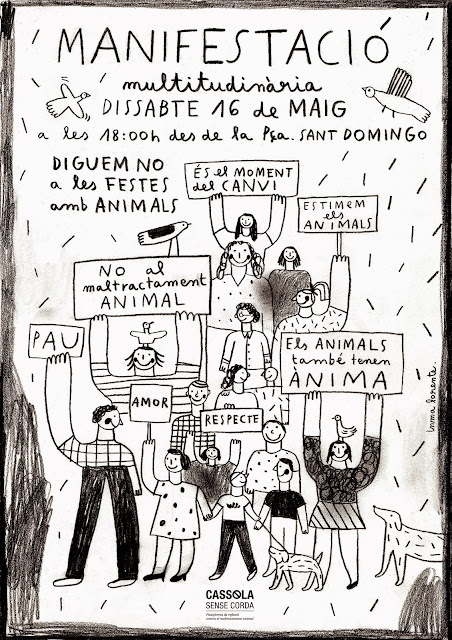 MANIFESTACIÓ
multitudinària
DISSABTE 16 de MAIG
a les 18:00h des de la Pça. SANT DOMINGO
DIGUEM NO
a les FESTES
amb ANIMALS
ÉS el MOMENT
del CANVI
ESTIMEM
els
ANIMALS
NO al
maltractament
ANIMAL
PAU
Els ANIMALS
també tenen
ÀNIMA
AMOR
RESPECTE
inma lorente.
CASSOLA
SENSE CORDA
Plataforma de rebuig
contra el maltractament animal